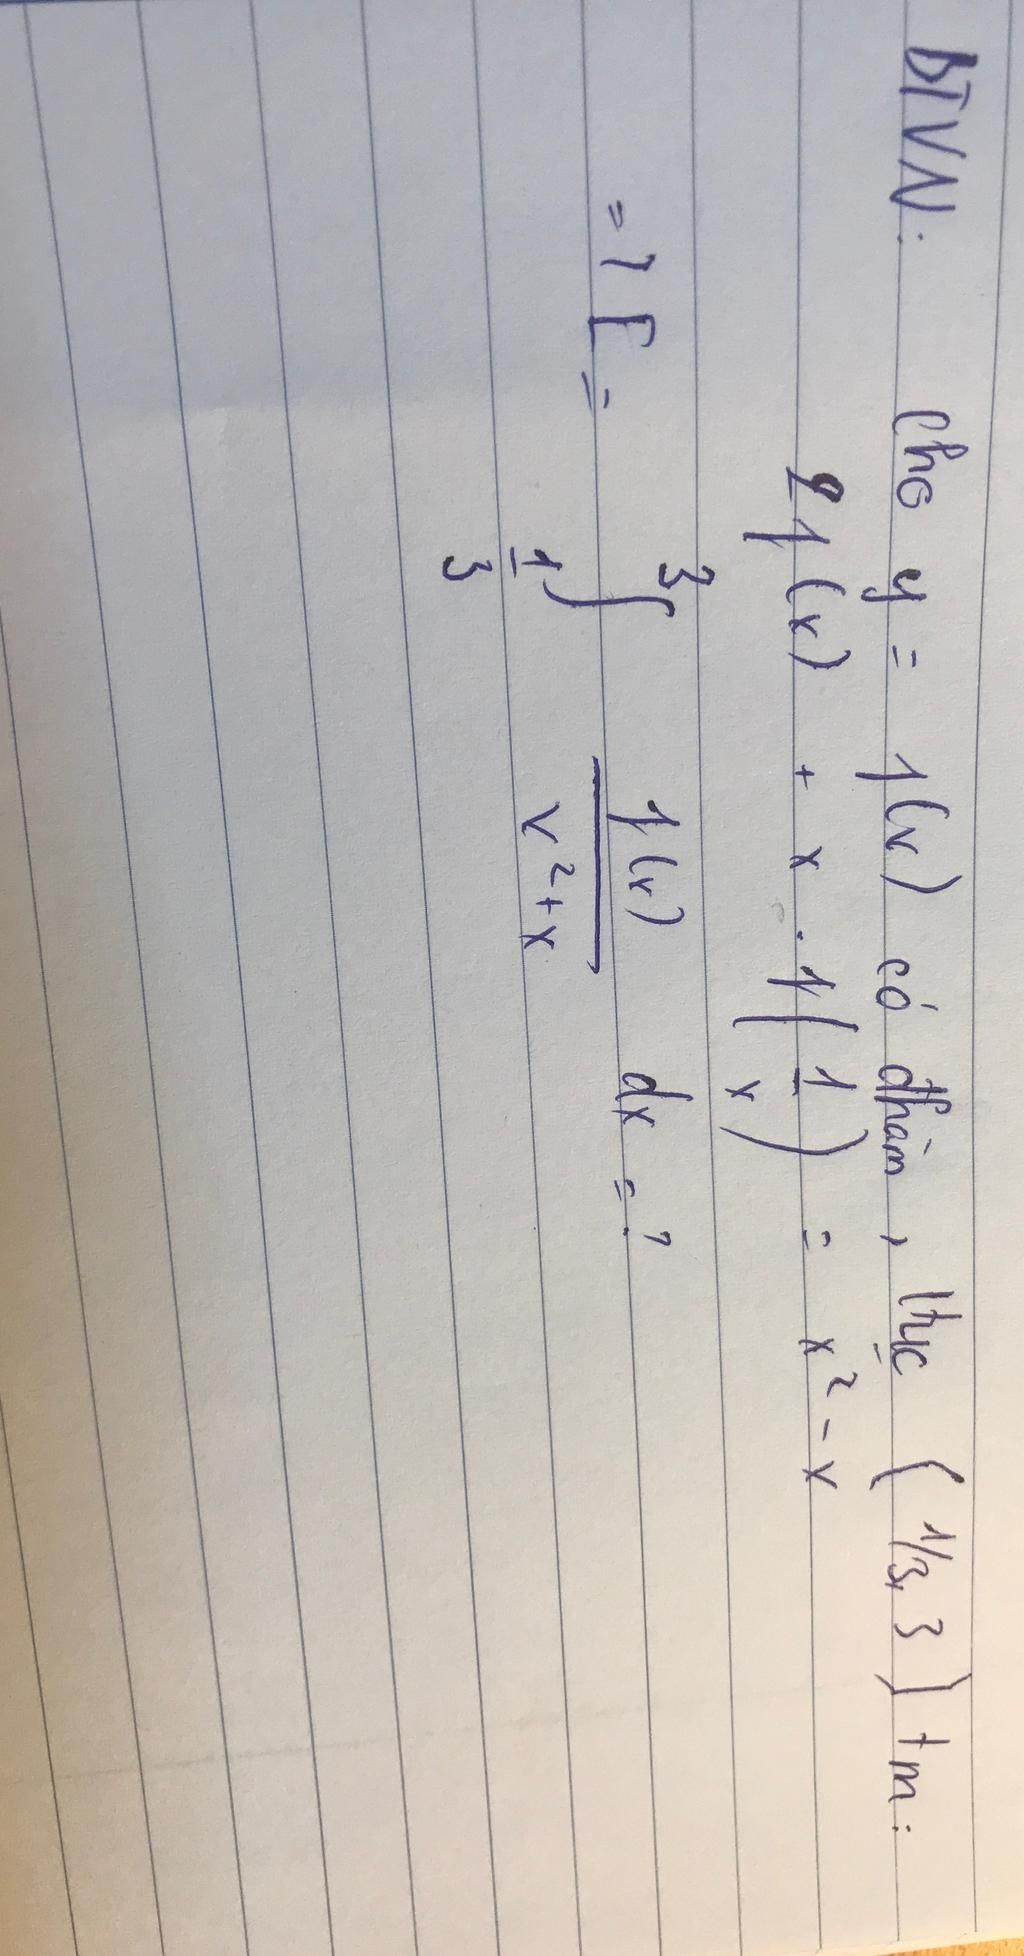 BTVN: Cho y = f(x) có đhàm, ltục (1/3, 3) tm:
2f(x) + x . f(1/x) = x² - x
=> I = ∫_{1/3}^{3} f(x)/(x²+x) dx = ?